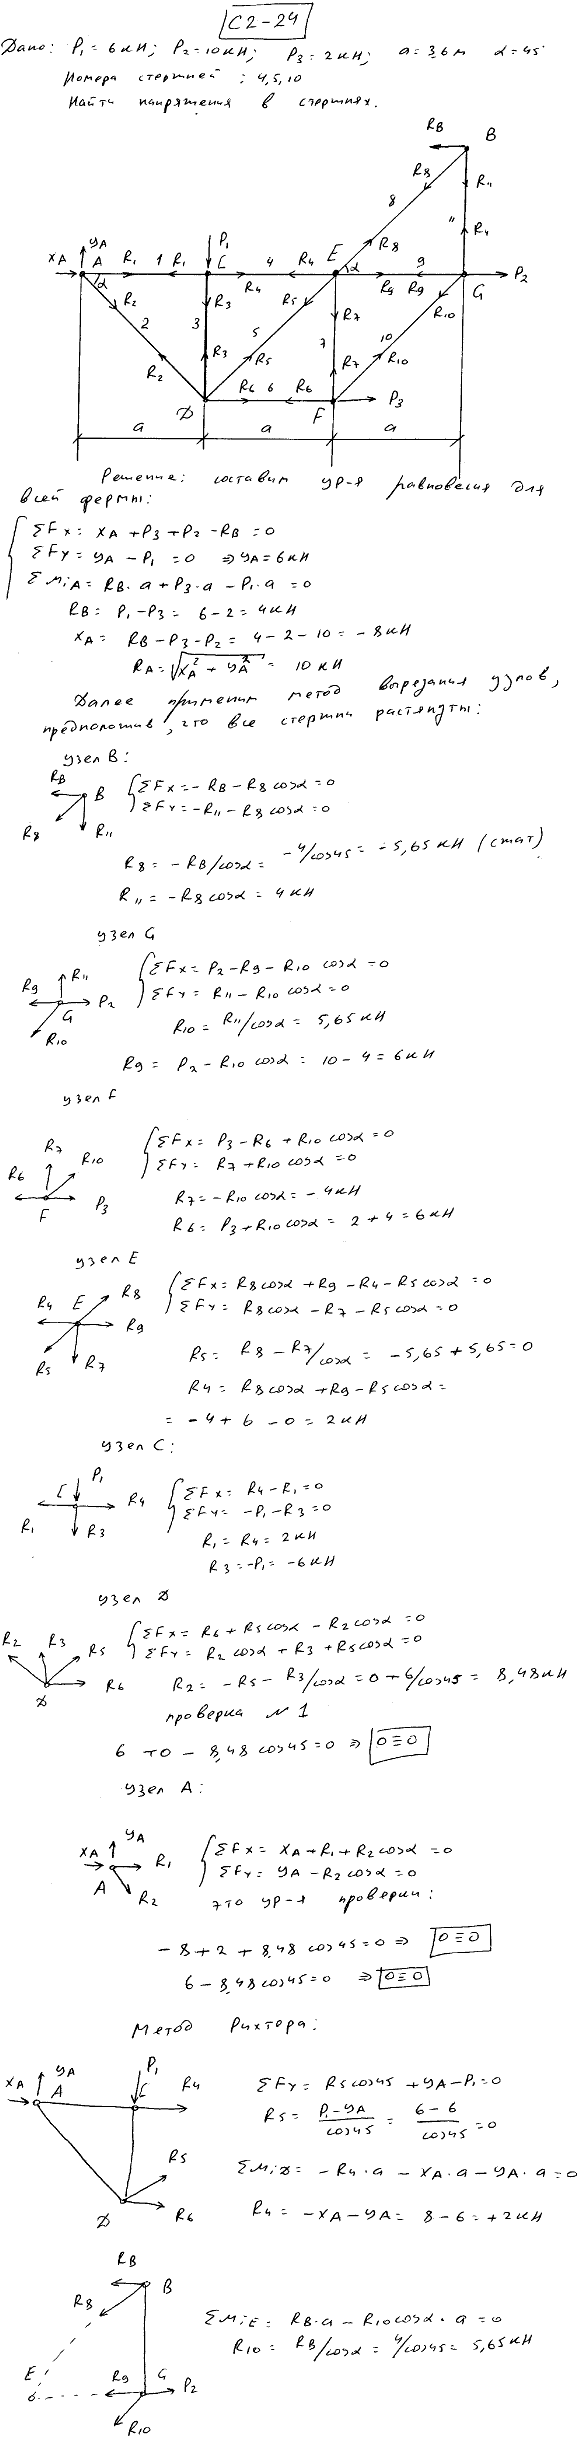 С2-24
Дано: P₁ = 6 кН; P₂ = 10 кН; P₃ = 2 кН; a = 3,6 м α = 45
Номера стержней: 4, 5, 10
Найти напряжения в стержнях.
R_B B
R₈ R₁₁
8 11
y_A P₁ R₈ R₄
x_A A R₁ 1 R₁ C 4 R₄ E α 9 P₂
α R₄ R₉ R₉ G
R₂ R₃ R₅ R₇ R₁₀
2 3 5 7 10
R₂ R₃ R₅ R₇ R₁₀
R₆ 6 R₆ P₃
D F
a a a
Решение: составим ур-я равновесия для
всей фермы:
ΣFx = x_A + P₃ + P₂ - R_B = 0
ΣFy = y_A - P₁ = 0 ⇒ y_A = 6 кН
ΣMi_A = R_B · a + P₃ · a - P₁ · a = 0
R_B = P₁ - P₃ = 6 - 2 = 4 кН
x_A = R_B - P₃ - P₂ = 4 - 2 - 10 = -8 кН
R_A = √(x_A² + y_A²) = 10 кН
Далее применим метод вырезания узлов,
предположив, что все стержни растянуты:
узел B:
R_B B ΣFx = -R_B - R₈ cosα = 0
R₈ R₁₁ ΣFy = -R₁₁ - R₈ cosα = 0
R₈ = -R_B/cosα = -4/cos45 = -5,65 кН (сжат)
R₁₁ = -R₈ cosα = 4 кН
узел G
R₉ R₁₁ ΣFx = P₂ - R₉ - R₁₀ cosα = 0
G P₂ ΣFy = R₁₁ - R₁₀ cosα = 0
R₁₀ R₁₀ = R₁₁/cosα = 5,65 кН
R₉ = P₂ - R₁₀ cosα = 10 - 4 = 6 кН
узел F
R₇ R₁₀ ΣFx = P₃ - R₆ + R₁₀ cosα = 0
R₆ ΣFy = R₇ + R₁₀ cosα = 0
F P₃ R₇ = -R₁₀ cosα = -4 кН
R₆ = P₃ + R₁₀ cosα = 2 + 4 = 6 кН
узел E
R₄ E R₈ ΣFx = R₈ cosα + R₉ - R₄ - R₅ cosα = 0
R₉ ΣFy = R₈ cosα - R₇ - R₅ cosα = 0
R₅ R₇ R₅ = R₈ - R₇/cosα = -5,65 + 5,65 = 0
R₄ = R₈ cosα + R₉ - R₅ cosα =
= -4 + 6 - 0 = 2 кН
узел C:
C P₁ R₄ ΣFx = R₄ - R₁ = 0
R₁ R₃ ΣFy = -P₁ - R₃ = 0
R₁ = R₄ = 2 кН
R₃ = -P₁ = -6 кН
узел D
R₂ R₃ R₅ ΣFx = R₆ + R₅ cosα - R₂ cosα = 0
R₆ ΣFy = R₂ cosα + R₃ + R₅ cosα = 0
D R₂ = -R₅ - R₃/cosα = 0 + 6/cos45 = 8,48 кН
проверка №1
6 + 0 - 8,48 cos45 = 0 ⇒ 0≡0
узел A:
x_A y_A R₁ ΣFx = x_A + R₁ + R₂ cosα = 0
A R₂ ΣFy = y_A - R₂ cosα = 0
это ур-я проверки:
-8 + 2 + 8,48 cos45 = 0 ⇒ 0≡0
6 - 8,48 cos45 = 0 ⇒ 0≡0
Метод Рихтера:
x_A y_A A P₁ C R₄ ΣFy = R₅ cos45 + y_A - P₁ = 0
R₅ = (P₁ - y_A)/cos45 = (6 - 6)/cos45 = 0
R₅ ΣMi_D = -R₄ · a - x_A · a - y_A · a = 0
D R₆ R₄ = -x_A - y_A = 8 - 6 = +2 кН
R_B B
R₈ ΣMi_E = R_B · a - R₁₀ cosα · a = 0
R₁₀ = R_B/cosα = 4/cos45 = 5,65 кН
E R₉ G P₂
R₁₀